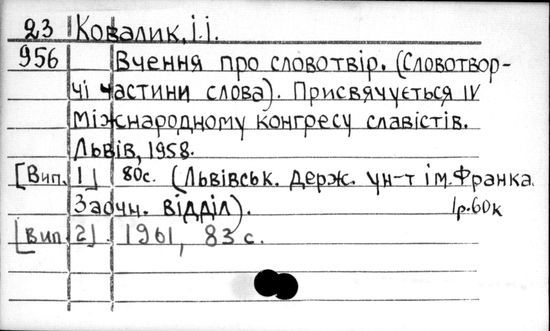 23 Ковалик, І.І.
956 Вчення про словотвір. (Словотвор-
чі частини слова). Присвячується IV
Міжнародному конгресу славістів.
Львів, 1958.
[Вип. 1] 80с. (Львівськ. держ. ун-т ім. Франка.
Заочн. відділ). 1р.60к
[Вип. 2]. 1961, 83 с.